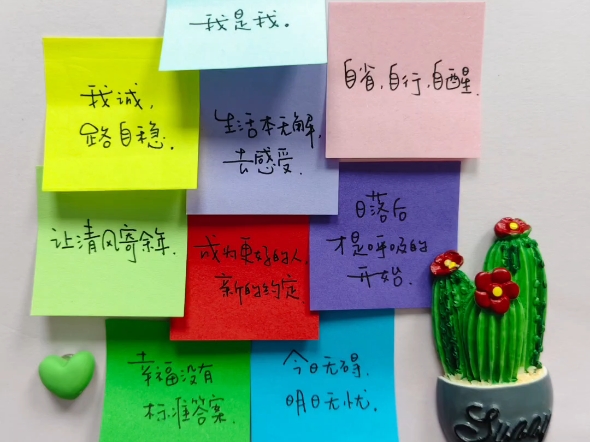 我是我。
我诚,
路自稳.
生活本无解,
去感受.
自省,自行,自醒.
让清风寄余年.
成为更好的人
新的约定
日落后
才是呼吸的
开始.
幸福没有
标准答案.
今日无碍.
明日无忧.